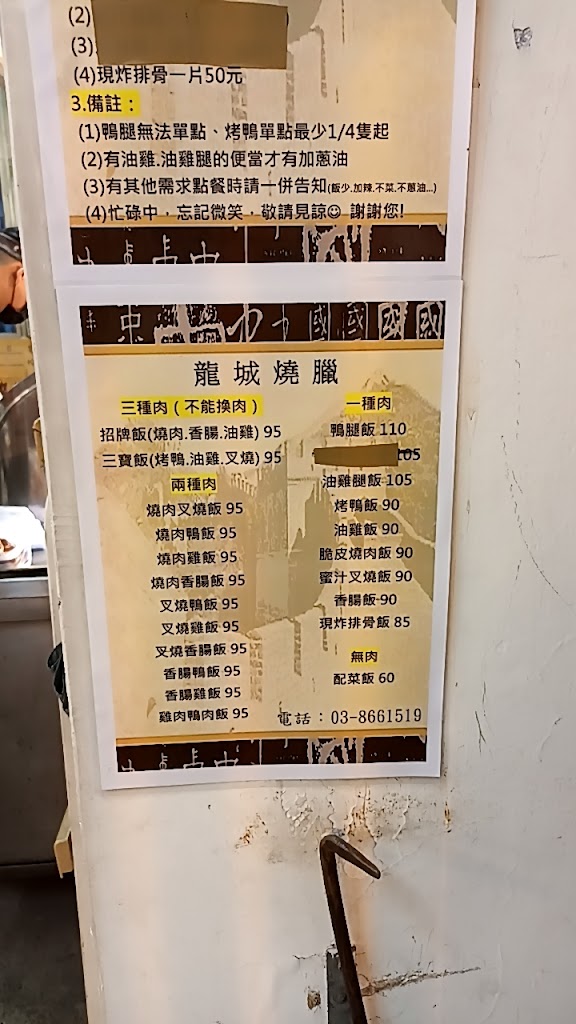 (2)
(3)
(4)現炸排骨一片50元
3.備註：
(1)鴨腿無法單點、烤鴨單點最少1/4隻起
(2)有油雞.油雞腿的便當才有加蔥油
(3)有其他需求點餐時請一併告知(飯少.加辣.不菜.不蔥油...)
(4)忙碌中，忘記微笑，敬請見諒☺ 謝謝您!
龍城燒臘
三種肉（不能換肉）
招牌飯(燒肉.香腸.油雞) 95
三寶飯(烤鴨.油雞.叉燒) 95
兩種肉
燒肉叉燒飯 95
燒肉鴨飯 95
燒肉雞飯 95
燒肉香腸飯 95
叉燒鴨飯 95
叉燒雞飯 95
叉燒香腸飯 95
香腸鴨飯 95
香腸雞飯 95
雞肉鴨肉飯 95
一種肉
鴨腿飯 110
105
油雞腿飯 105
烤鴨飯 90
油雞飯 90
脆皮燒肉飯 90
蜜汁叉燒飯 90
香腸飯 90
現炸排骨飯 85
無肉
配菜飯 60
電話：03-8661519